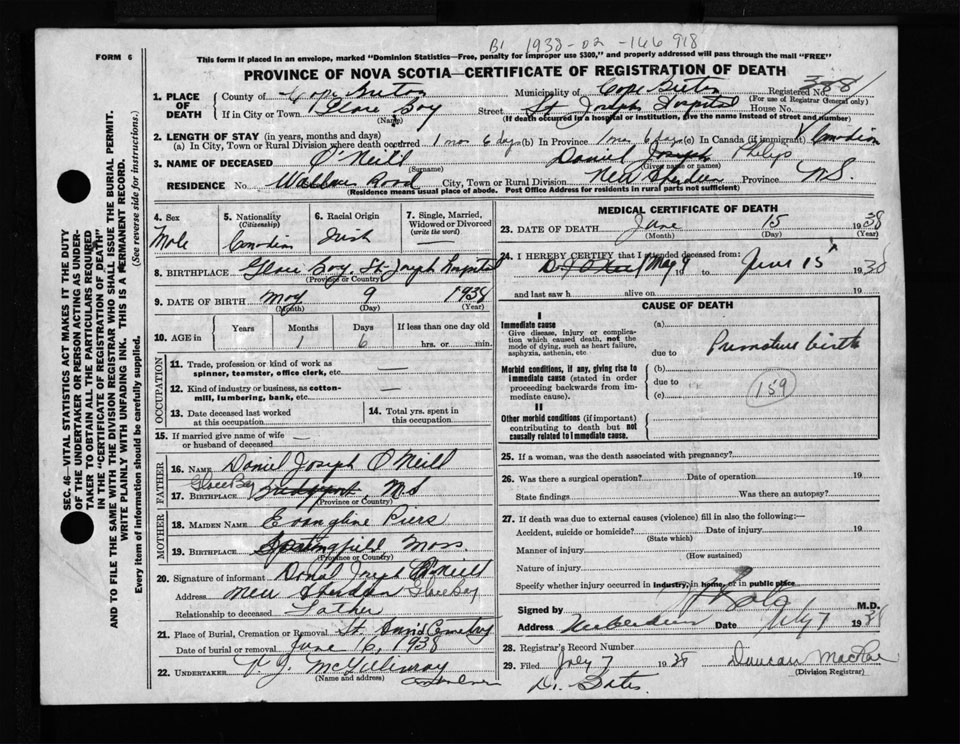 B1 1938-02-166918
FORM 6
This form if placed in an envelope, marked "Dominion Statistics—Free, penalty for improper use $300," and properly addressed will pass through the mail "FREE"
PROVINCE OF NOVA SCOTIA—CERTIFICATE OF REGISTRATION OF DEATH
1. PLACE OF DEATH County of Cape Breton Municipality of Cape Breton Registered No.
(For use of Registrar General only)
If in City or Town Glace Bay Street St. Joseph Hospital House No.
(Name) (If death occurred in a hospital or institution, give the name instead of street and number)
2. LENGTH OF STAY (in years, months and days)
(a) In City, Town or Rural Division where death occurred 1 mos 6 days (b) In Province 1 mos 6 days (c) In Canada (if immigrant) Canadian
3. NAME OF DECEASED O'Neill Daniel Joseph Philip
(Surname) (Given name or names)
RESIDENCE No. Wallace Road City, Town or Rural Division New Aberdeen Province N.S.
(Residence means usual place of abode. Post Office Address for residents in rural parts not sufficient)
4. Sex Male
5. Nationality (Citizenship) Canadian
6. Racial Origin Irish
7. Single, Married, Widowed or Divorced (write the word) —
8. BIRTHPLACE Glace Bay, St. Joseph Hospital
(Province or Country)
9. DATE OF BIRTH May 9 1938
(Month) (Day) (Year)
10. AGE in Years Months Days If less than one day old
1 6 hrs. or min.
OCCUPATION
11. Trade, profession or kind of work as spinner, teamster, office clerk, etc. —
12. Kind of industry or business, as cotton-mill, lumbering, bank, etc. —
13. Date deceased last worked at this occupation
14. Total yrs. spent in this occupation
15. If married give name of wife or husband of deceased —
FATHER
16. NAME Daniel Joseph O'Neill
Glace Bay
17. BIRTHPLACE Bridgeport, N.S
(Province or Country)
MOTHER
18. MAIDEN NAME Evangline Piers
19. BIRTHPLACE Springfield, Mass.
(Province or Country)
20. Signature of informant Donal Joseph O'Neill
Address New Aberdeen Glace Bay
Relationship to deceased Father
21. Place of Burial, Cremation or Removal St. Ann's Cemetery
Date of burial or removal June 16, 1938
22. UNDERTAKER V. J. McGillivray
(Name and address)
MEDICAL CERTIFICATE OF DEATH
23. DATE OF DEATH June 15 1938
(Month) (Day) (Year)
24. I HEREBY CERTIFY that I attended deceased from:
May 9 to June 15 1938
and last saw h alive on 19
CAUSE OF DEATH
I
Immediate cause
Give disease, injury or complication which caused death, not the mode of dying, such as heart failure, asphyxia, asthenia, etc.
(a)
due to Premature birth
Morbid conditions, if any, giving rise to immediate cause (stated in order proceeding backwards from immediate cause).
(b)
due to
(c)
159
II
Other morbid conditions (if important) contributing to death but not causally related to immediate cause.
25. If a woman, was the death associated with pregnancy?
26. Was there a surgical operation? Date of operation 19
State findings Was there an autopsy?
27. If death was due to external causes (violence) fill in also the following:—
Accident, suicide or homicide? Date of injury 19
(State which)
Manner of injury
(How sustained)
Nature of injury
Specify whether injury occurred in industry, in home, or in public place
Signed by M.D.
Address New Aberdeen Date July 7 1938
28. Registrar's Record Number
29. Filed July 7 1938 Duncan MacRae
(Division Registrar)
Dr. Bates.
SEC. 46—VITAL STATISTICS ACT MAKES IT THE DUTY
OF THE UNDERTAKER OR PERSON ACTING AS UNDER-
TAKER TO OBTAIN ALL THE PARTICULARS REQUIRED
IN THE "CERTIFICATE OF REGISTRATION OF DEATH"
AND TO FILE THE SAME WITH THE DIVISION REGISTRAR WHO SHALL ISSUE THE BURIAL PERMIT.
WRITE PLAINLY WITH UNFADING INK. THIS IS A PERMANENT RECORD.
Every item of information should be carefully supplied. (See reverse side for instructions.)